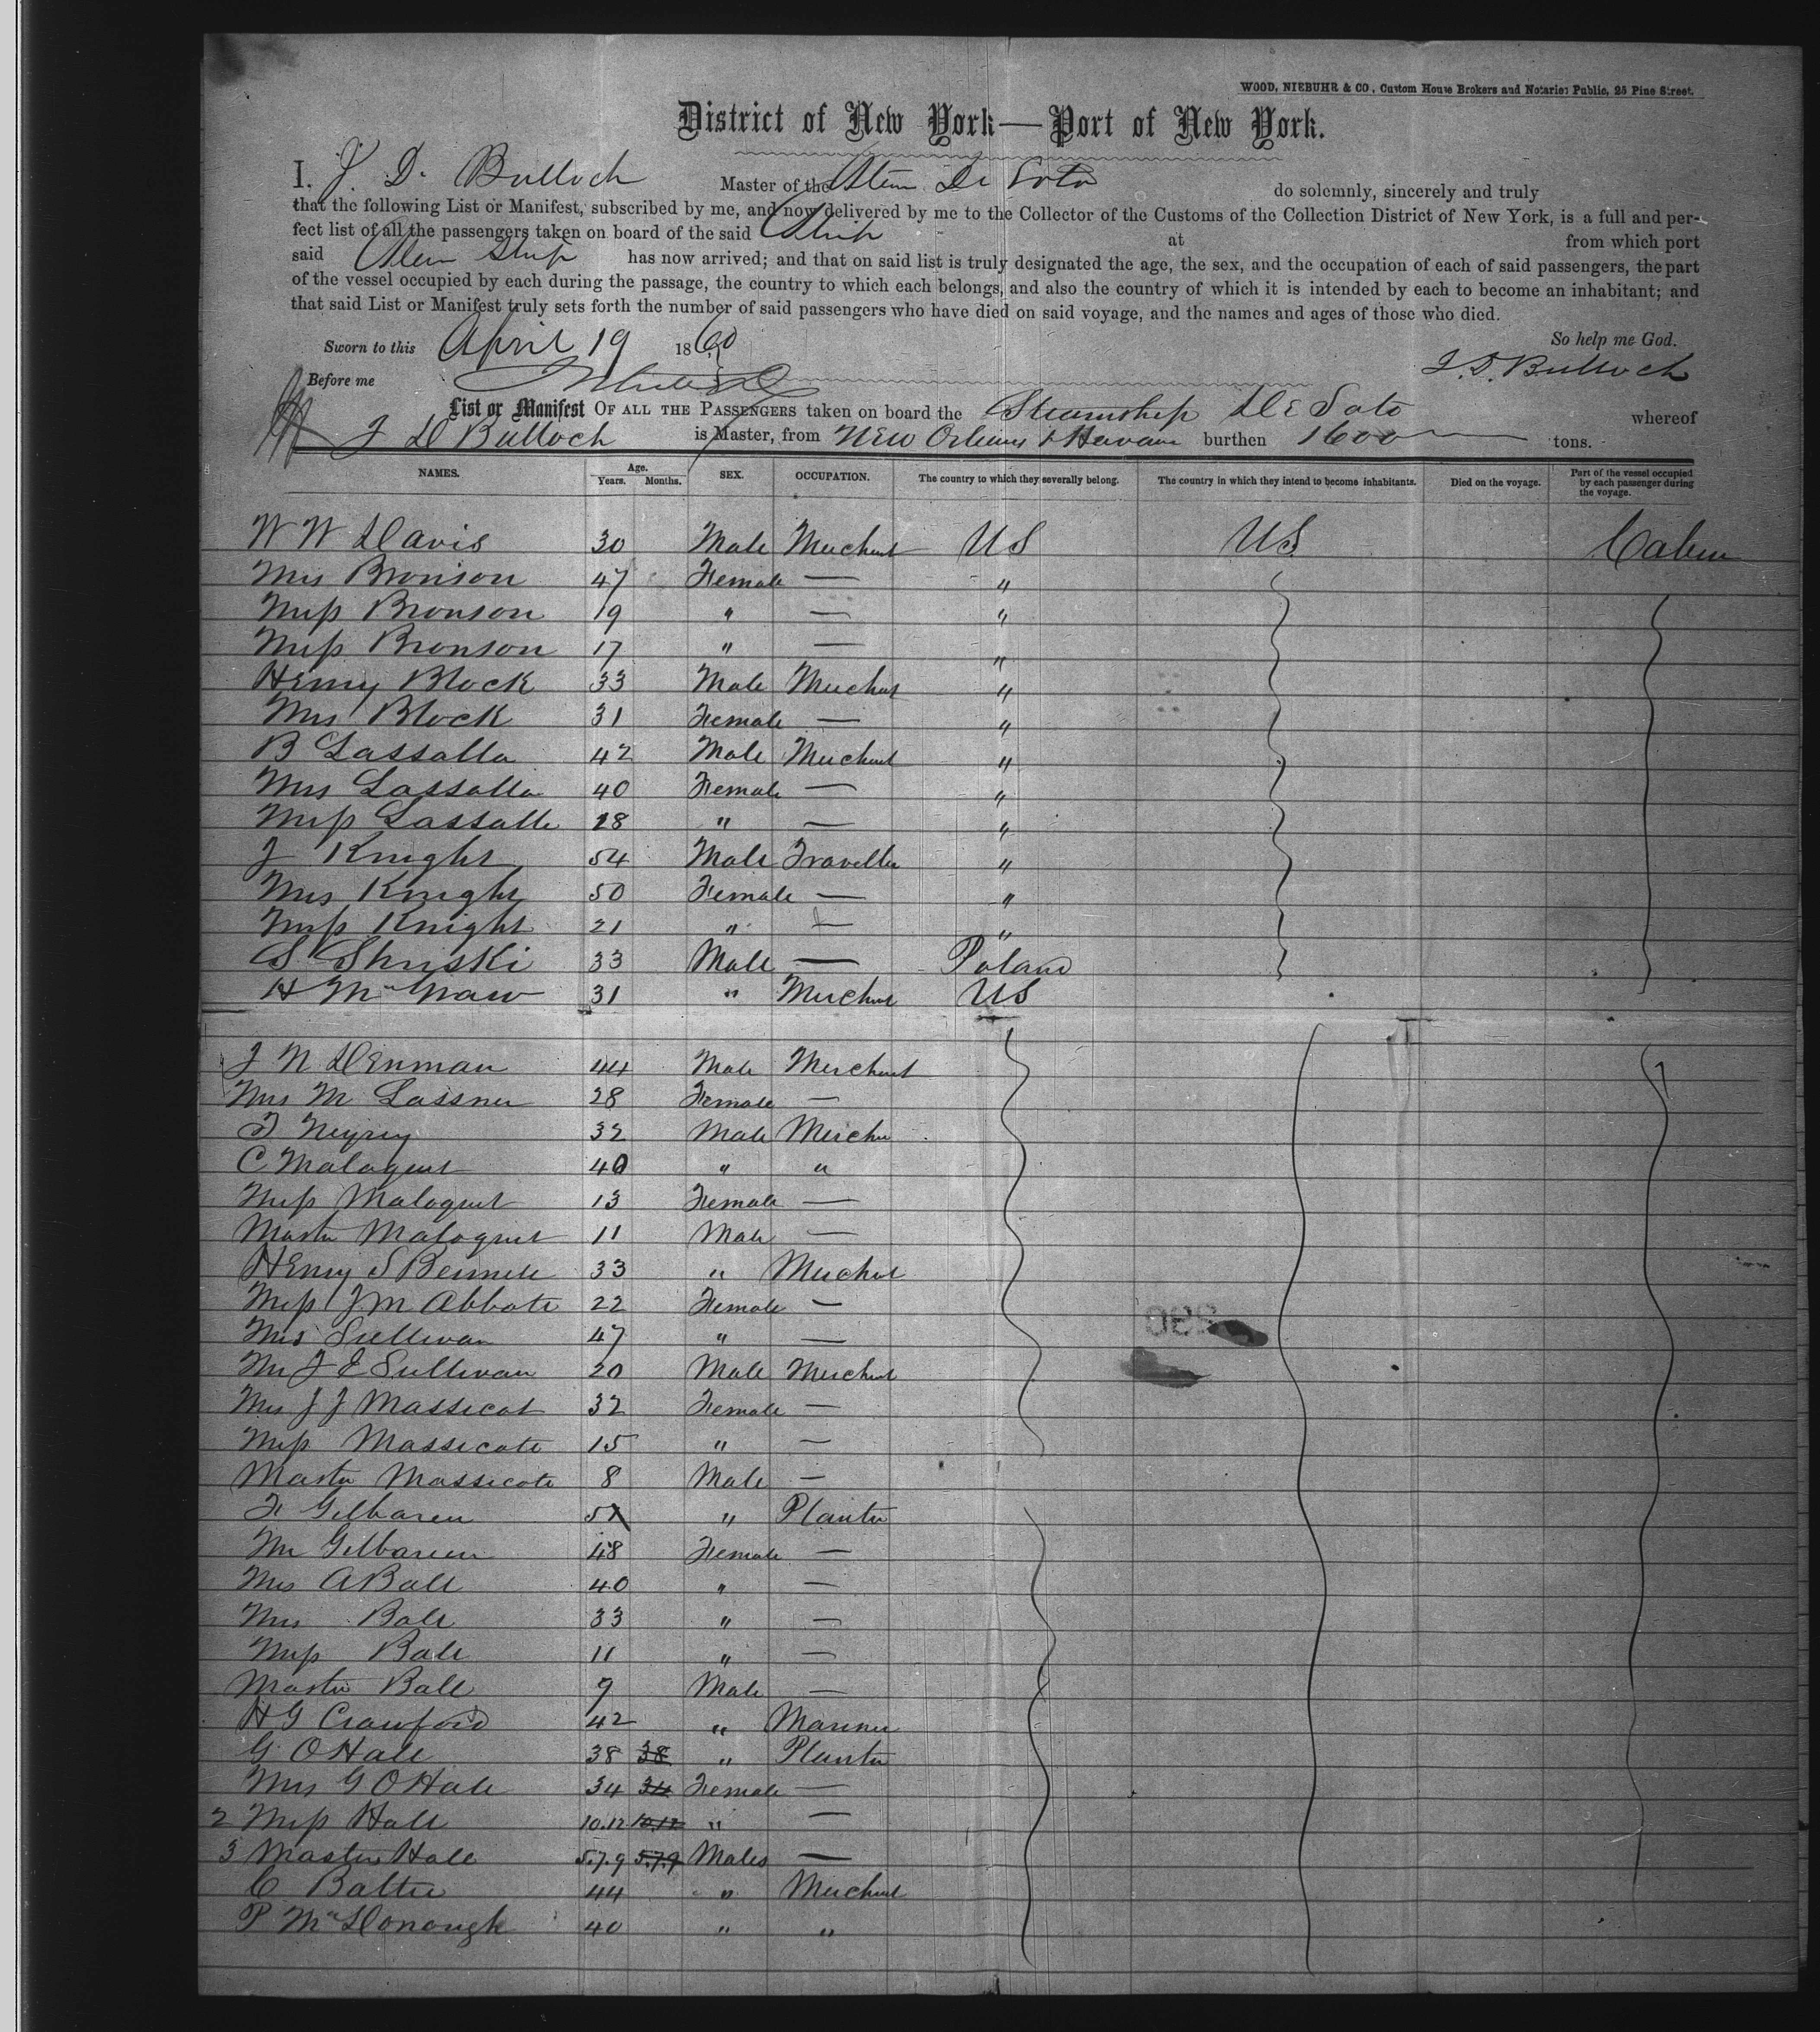 WOOD, NIEBUHR & CO., Custom House Brokers and Notaries Public, 25 Pine Street.
District of New York—Port of New York.
I, J. D. Bulloch Master of the Stem De Soto do solemnly, sincerely and truly
that the following List or Manifest, subscribed by me, and now delivered by me to the Collector of the Customs of the Collection District of New York, is a full and per-
fect list of all the passengers taken on board of the said Ship at from which port
said Stem Ship has now arrived; and that on said list is truly designated the age, the sex, and the occupation of each of said passengers, the part
of the vessel occupied by each during the passage, the country to which each belongs, and also the country of which it is intended by each to become an inhabitant; and
that said List or Manifest truly sets forth the number of said passengers who have died on said voyage, and the names and ages of those who died.
Sworn to this April 19 1860 So help me God.
Before me J. D. Bulloch
List or Manifest OF ALL THE PASSENGERS taken on board the Steamship De Soto whereof
J D Bulloch is Master, from New Orleans & Havana burthen 1600 tons.
NAMES. Age. Years. Months. SEX. OCCUPATION. The country to which they severally belong. The country in which they intend to become inhabitants. Died on the voyage. Part of the vessel occupied by each passenger during the voyage.
W W Davis 30 Male Merchant US US Cabin
Mrs Bronson 47 Female — "
Miss Bronson 19 " — "
Miss Bronson 17 " — "
Henry Block 33 Male Merchant "
Mrs Block 31 Female — "
B Lassalle 42 Male Merchant "
Mrs Lassalle 40 Female — "
Miss Lassalle 18 " — "
J Knight 54 Male Traveller "
Mrs Knight 50 Female — "
Miss Knight 21 " — "
S 33 Male — Poland
H 31 " Merchant US
J N Denman 44 Male Merchant
Mrs M Lassner 28 Female —
32 Male Merchn
C Maloquet 40 " "
Miss Maloquet 13 Female —
Master Maloquet 11 Male —
Henry S 33 " Merchant
Miss J M Abbate 22 Female —
Mrs Sullivan 47 " —
Mr J E Sullivan 20 Male Merchant
Mrs J J Massicot 32 Female —
Miss Massicote 15 " —
Master Massicote 8 Male —
" Planter
48 Female —
Mrs A Ball 40 " —
Mrs Ball 33 " —
Miss Ball 11 " —
Master Ball 9 Male —
H G Crawford 42 " Mariner
G O Hall 38 38 " Planter
Mrs G O Hall 34 34 Female —
2 Miss Hall 10.12 10.12 " —
3 Master Hall 5.7.9 5.7.9 Males —
C 44 " Merchant
P McDonough 40 " "